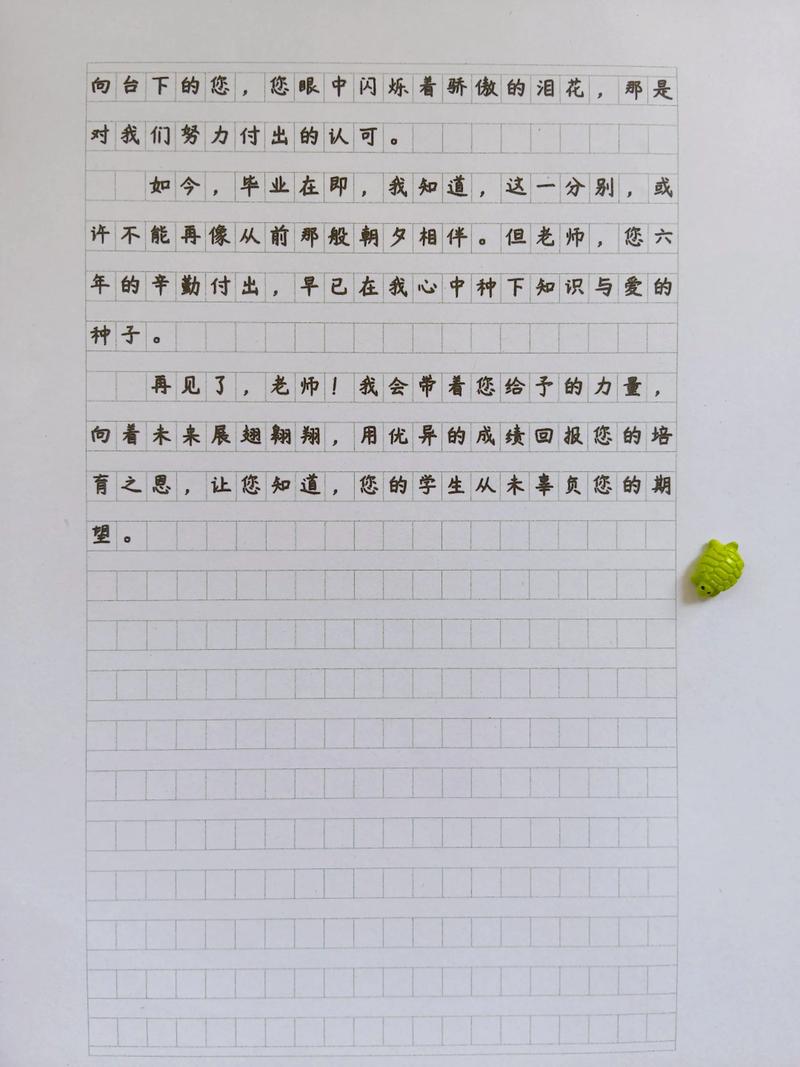 向台下的您，您眼中闪烁着骄傲的泪花，那是
对我们努力付出的认可。
如今，毕业在即，我知道，这一分别，或
许不能再像从前那般朝夕相伴。但老师，您六
年的辛勤付出，早已在我心中种下知识与爱的
种子。
再见了，老师！我会带着您给予的力量，
向着未来展翅翱翔，用优异的成绩回报您的培
育之恩，让您知道，您的学生从未辜负您的期
望。